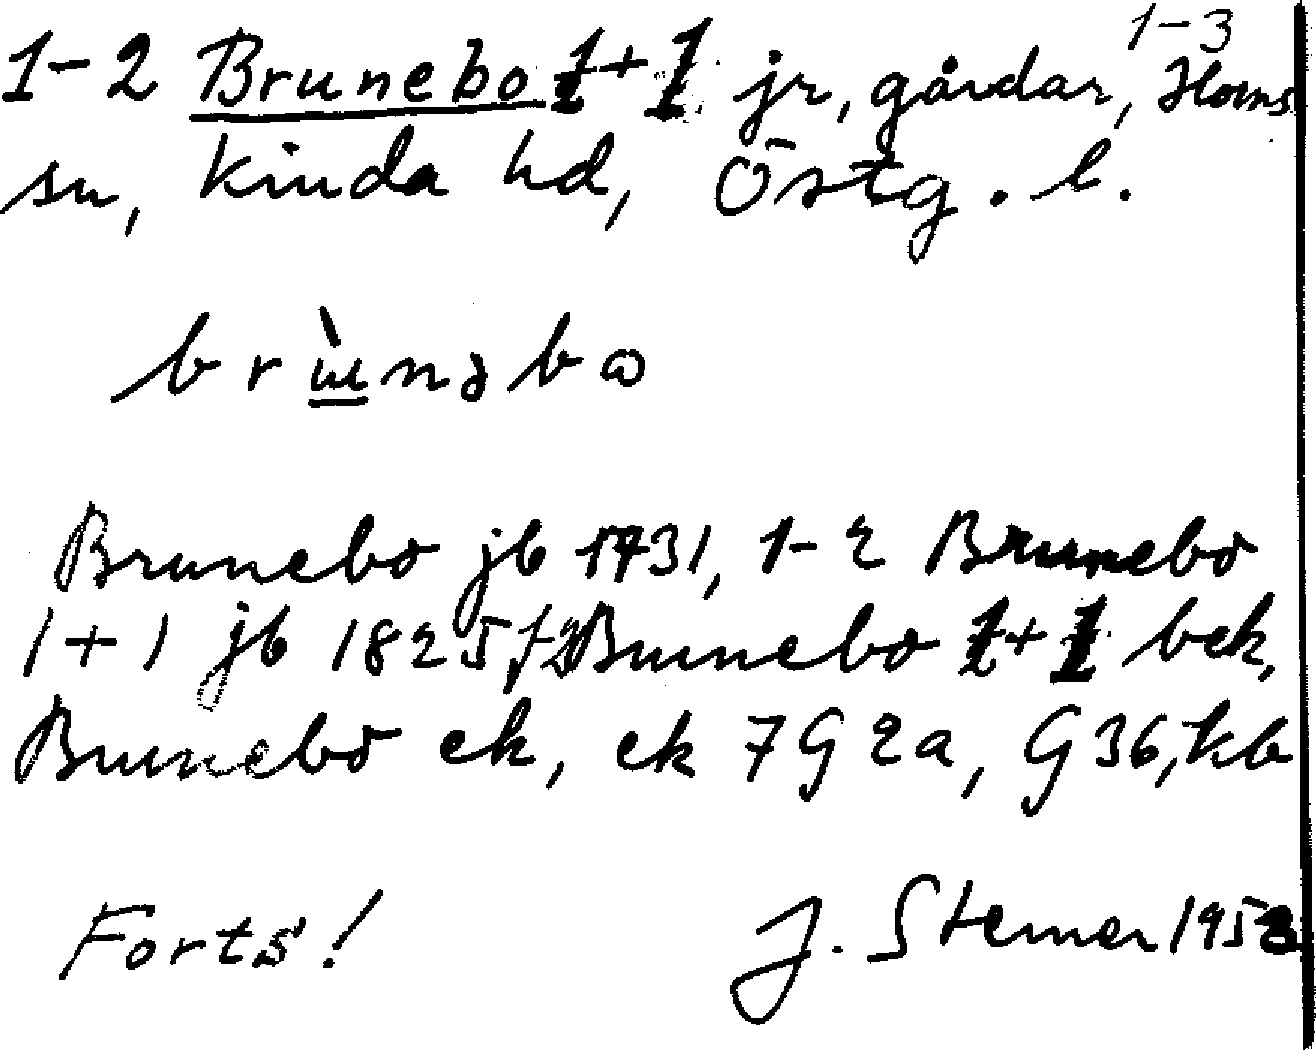 1-3
1-2 Brunebo 1+1 jr, gårdar, Horns
sn, Kinda hd, Östg. l.
Brunebo jb 1731, 1-2 Brunebo
1+1 jb 1825, Brunebo 1+1 bek,
Brunebo ek, ek 7G2a, G36, kb
Forts! J. Sterner 1953